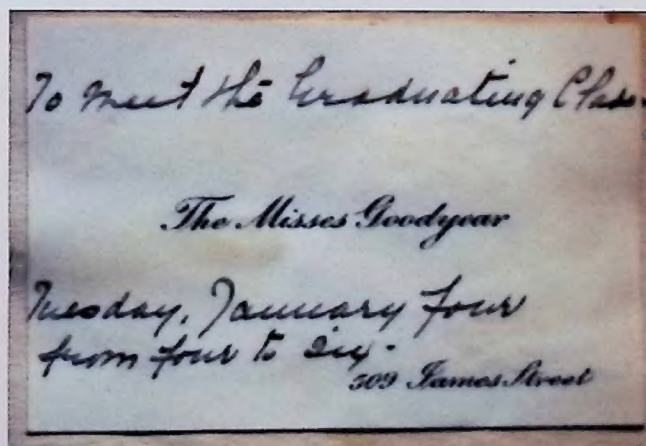 To meet the Graduating Class.
The Misses Goodyear
Tuesday, January four
from four to six.
509 James Street